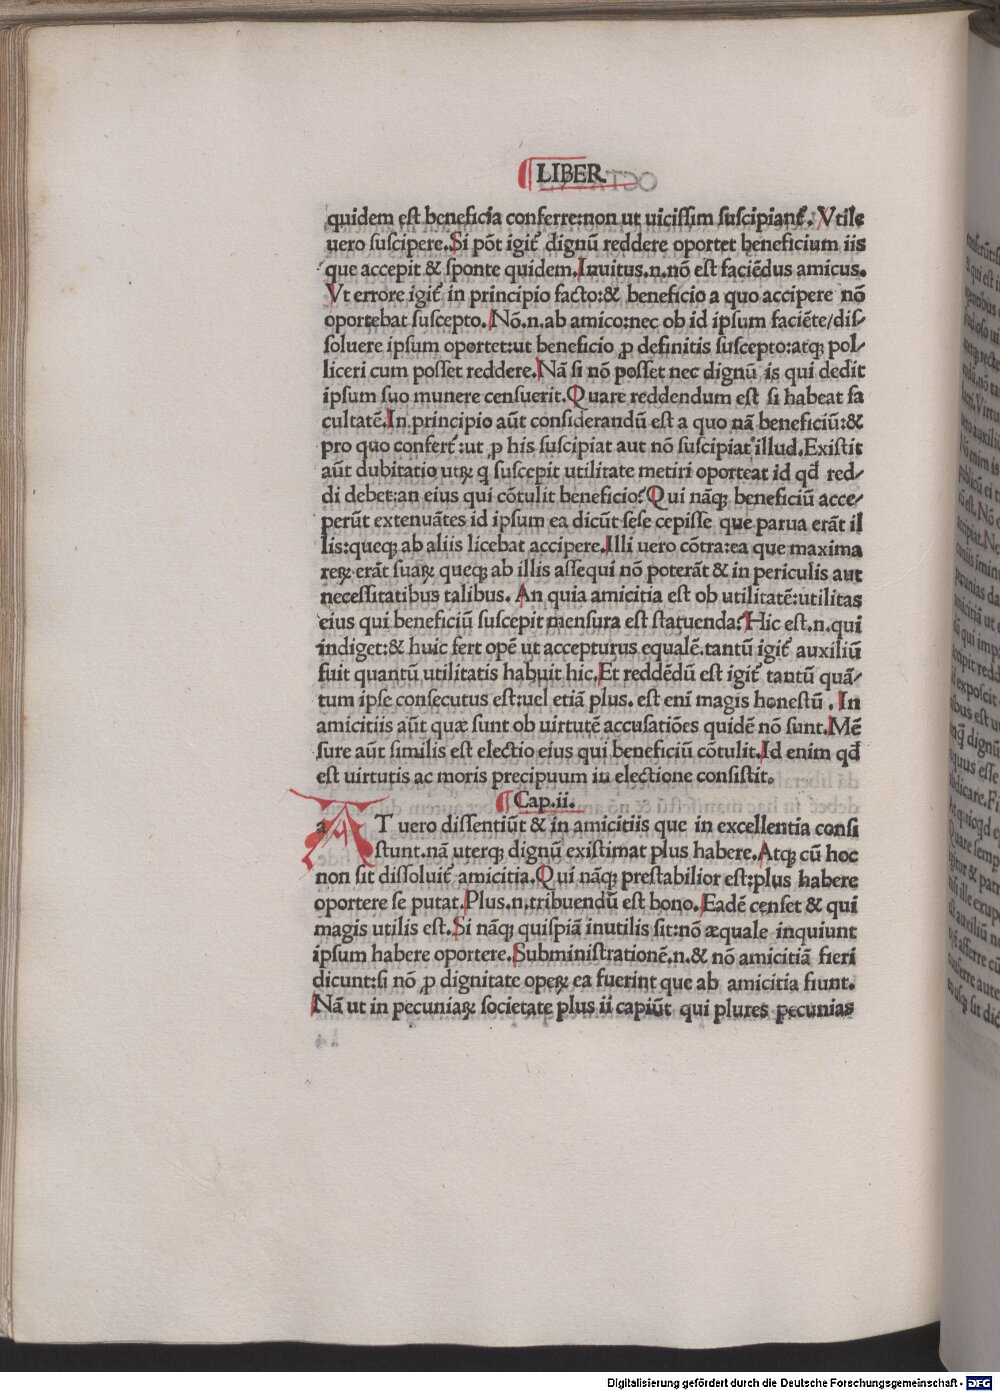 LIBER
quidem est beneficia conferre:non ut uicissim suscipiant᷑. Vtile
uero suscipere.Si pōt igit᷑ dignū reddere oportet beneficium iis
que accepit & sponte quidem.Inuitus.n.nō est faciēdus amicus.
Vt errore igit᷑ in principio facto:& beneficio a quo accipere nō
oportebat suscepto. Nō.n.ab amico:nec ob id ipsum faciēte/dis⸗
soluere ipsum oportet:ut beneficio ꝓ definitis suscepto:atqꝫ pol⸗
liceri cum posset reddere.Nā si nō posset nec dignū is qui dedit
ipsum suo munere censuerit.Quare reddendum est si habeat fa
cultatē.In principio aūt considerandū est a quo nā beneficiū:&
pro quo confert᷑:ut ꝓ his suscipiat aut nō suscipiat illud.Existit
aūt dubitatio utꝝ q suscepit utilitate metiri oporteat id qd̄ red⸗
di debet:an eius qui cōtulit beneficio?Qui nāqꝫ beneficiū acce⸗
perūt extenuātes id ipsum ea dicūt sese cepisse que parua erāt il
lis:queqꝫ ab aliis licebat accipere.Illi uero cōtra:ea que maxima
reꝝ erāt suaꝝ queqꝫ ab illis assequi nō poterāt & in periculis aut
necessitatibus talibus. An quia amicitia est ob utilitatē:utilitas
eius qui beneficiū suscepit mensura est statuenda?Hic est.n.qui
indiget:& huic fert opē ut accepturus equalē.tantū igit᷑ auxiliū
fuit quantū utilitatis habuit hic.Et reddēdū est igit᷑ tantū quā⸗
tum ipse consecutus est:uel etiā plus. est enī magis honestū . In
amicitiis aūt quæ sunt ob uirtutē accusatiōes quidē nō sunt.Mē
sure aūt similis est electio eius qui beneficiū cōtulit.Id enim qd̄
est uirtutis ac moris precipuum in electione consistit.
Cap.ii.
aT uero dissentiūt & in amicitiis que in excellentia consi
stunt.nā uterqꝫ dignū existimat plus habere.Atqꝫ cū hoc
non sit dissoluit᷑ amicitia.Qui nāqꝫ prestabilior est:plus habere
oportere se putat.Plus.n.tribuendū est bono. Eadē censet & qui
magis utilis est.Si nāqꝫ quispiā inutilis sit:nō æquale inquiunt
ipsum habere oportere.Subministrationē.n.& nō amicitiā fieri
dicunt:si nō ꝓ dignitate opeꝝ ea fuerint que ab amicitia fiunt.
Nā ut in pecuniaꝝ societate plus ii capiūt qui plures pecunias
Digitalisierung gefördert durch die Deutsche Forschungsgemeinschaft - DFG